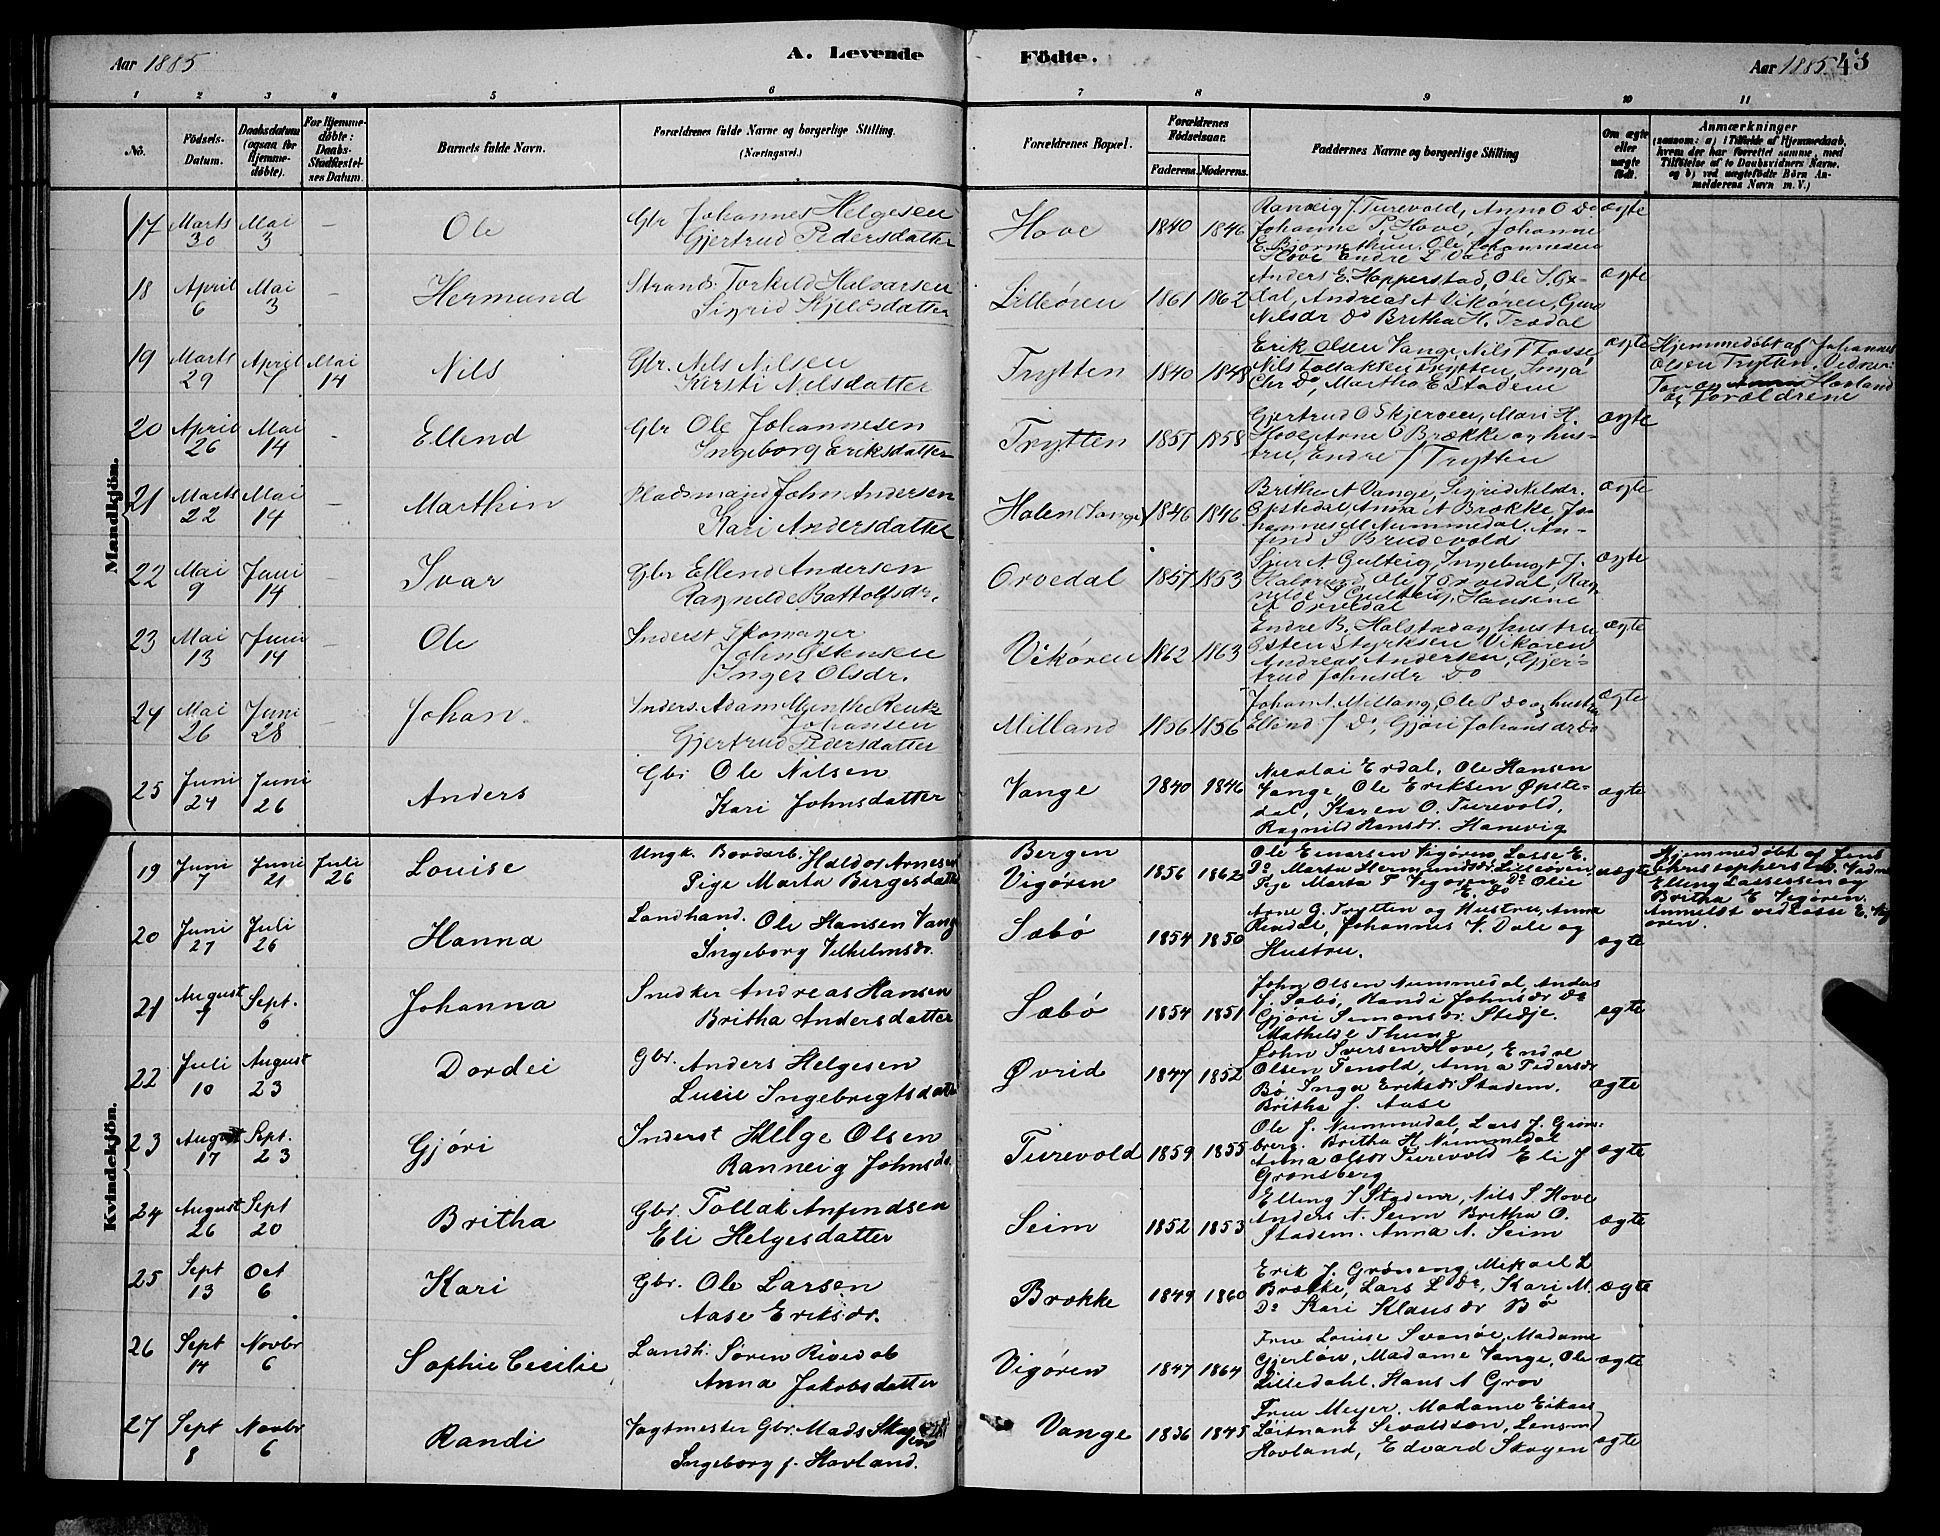 Aar 1885
A. Levende
Födte.
Aar 1885. 43
1 2 3 4 5 6 7 8 9 10 11
No.
Födsels-
Datum.
Daabsdatum
(ogsaa for
Hjemme-
döbte).
For Hjemme-
döbte:
Daabs-
Stadfæstel-
ses Datum.
Barnets fulde Navn.
Forældrenes fulde Navne og borgerlige Stilling.
(Næringsvei.)
Forældrenes Bopæl.
Forældrenes
Födselsaar.
Faderens. Moderens.
Faddernes Navne og borgerlige Stilling
Om ægte
eller
uægte
födt.
Anmærkninger
(saasom: a) i Tilfælde af Hjemmedaab,
hvem der har forrettet samme, med
Tilföielse af to Daabsvidners Navne,
og b) ved uægtefödte Börn An-
melderens Navn m. V.)
Mandkjön.
17 Marts 30 Mai 3 — Ole
Gbr Johannes Helgesen
Gjertrud Pedersdatter
Hove 1840 1846
Ranveig J. Turevold, Anna O Do
Johanne P. Hove, Johanne
Ole Johannesen
Hove Endre L
ægte
18 April 6 Mai 3 — Hermund
Strands. Torkild Halvorsen
Sigrid Kjeldsdatter
Lilleøren 1861 1862
Anders E. Hopperstad, Ole
Andreas A Vikøren,
Nilsdr Do Britha H. Trædal
ægte
19 Marts 29 April 7 Mai 14 Nils
Gbr. Nils Nilsen
Kirsti Nilsdatter
Trytten 1840 1848
Erik Olsen Vange, Nils T Fosse
Nils Tollaksen Trytten,
Chr Do, Martha E Stadem
ægte
Hjemmedøbt af Johannes
Olsen Trytten. Vidner:
Hovland
og Forældrene
20 April 26 Mai 14 - Ellend
Gbr Ole Johannesen
Ingeborg Eriksdatter
Trytten 1857 1858
Gjertrud O Skjerven, Mari H.
Hove, Arne O Brække og hus-
tru, Endre J Trytten
ægte
21 Marts 22 Mai 14 — Marthin
Pladsmand John Andersen
Kari Andersdatter
Holen (Vange) 1846 1846
Britha A Vange, Sigrid Nilsdr.
Opstedal, Anna A Brække, Jo-
hannes M Nummedal, An-
find S Brudevold
ægte
22 Mai 9 Juni 14 — Ivar
Gbr Ellend Andersen
Ragnilde Bottolfsdr.
Orvedal 1857 1853
Sjur A Gulteig, Ingebrigt J.
Ole J Orvedal, Rag-
nilde Hansine
A Orvedal
ægte
23 Mai 13 Juni 14 Ole
Inderst Skomager
John Østensen
Inger Olsdr.
Vikøren 1862 1863
Endre B. Holstad og hustru
Østen Styrksen Vikøren
Andreas Andersen, Gjer-
trud Johnsdr Do
ægte
24 Mai 26 Juni 28 — Johan.
Inders. Adam Johansen
Gjertrud Pedersdatter
Milland 1856 1856
Johan A Milland, Ole P Do og hustru
Ellend J Do, Gjøri Johansdr Do
ægte
25 Juni 24 Juni 26 Anders
Gbr Ole Nilsen
Kari Johnsdatter
Vange 1840 1846
Nicolai Erdal, Ole Hansen
Vange, Ole Eriksen Øpste-
dal, Karen O. Turevold,
Ragnild Hansdr. Hanevig
ægte
Kvindekjön.
19 Juni 7 Juni 21 Juli 26 Louise
Ungk. Bordarb. Haldor Arnesen
Pige Marta Bergesdatter
Bergen
Vigøren 1856 1862
Ole Einarsen Vigøren Lasse E.
Do Marta Hermundsdr. Lilleøren
Pige Marta T Vigøren Do Olie
E. Do
uægte
Hjemmedøbt af Jens
Christophersen
Elling Lassesen og
Britha E Vigøren
Anmeldt ved Lasse E. Vig-
øren.
20 Juni 27 Juli 26 Hanna
Landhand. Ole Hansen Vange
Ingeborg Vilhelmsdr.
Sæbø 1854 1850
Arne O. Trytten og Hustru, Anna
Rindal, Johannes V. Dale og
Hustru.
ægte
21 August 7 Sept. 6 Johanna
Snedker Andreas Hansen
Britha Andersdatter
Sæbø 1854 1851
John Olsen Nummedal, Anders
J. Sæbø, Randi Johnsdr Do
Gjøri Simonsdr. Stedje.
Mathilde Thung
ægte
22 Juli 10 August 23 Dordei
Gbr. Anders Helgesen
Lucie Ingebrigtsdatter
Øvrid 1847 1852
John Iversen Hove, Endre
Olsen Tenold, Anna Pedersdr
Bø, Inga Eriksdr Stadem.
Britha J. Aase
ægte
23 August 17 Sept. 23 Gjøri
Inderst Helge Olsen
Ranneig Johnsdr.
Turevold 1859 1855
Ole J. Nummedal, Lars J. Grøns-
berg. Britha H. Nummedal
Anna Olsdr Turevold Eli J
Grønsberg
ægte
24 August 26 Sept 20 Britha
Gbr. Tollak Anfindsen
Eli Helgesdatter
Seim 1852 1853
Elling I Stadem, Nils S. Hove
Anders A. Seim Britha O.
Stadem. Anna A. Seim
ægte
25 Sept 13 Oct 6 Kari
Gbr. Ole Larsen
Aase Eriksdr.
Brække 1849 1860
Erik J. Grøneng, Mikael L
Brække, Lars L Do, Kari M.
Do Kari Klausdr Bø
ægte
26 Sept 14 Novbr 6 Sophie Cecilie,
Landh. Søren Rivedal
Anna Jakobsdatter
Vigøren 1847 1864
Frue Louise Svanøe, Madame
Gjerløw, Madame Vange, Ole
Lilledahl. Hans A Grov
ægte
27 Sept 8 Novbr 6 Randi
Vagtmester Gbr. Mads Skagen
Ingeborg f. Hovland.
Vange 1836 1845
Frue Meyer. Madame
Løitnant Sevaldson, Lensmd
Hovland, Edvard Skagen
ægte